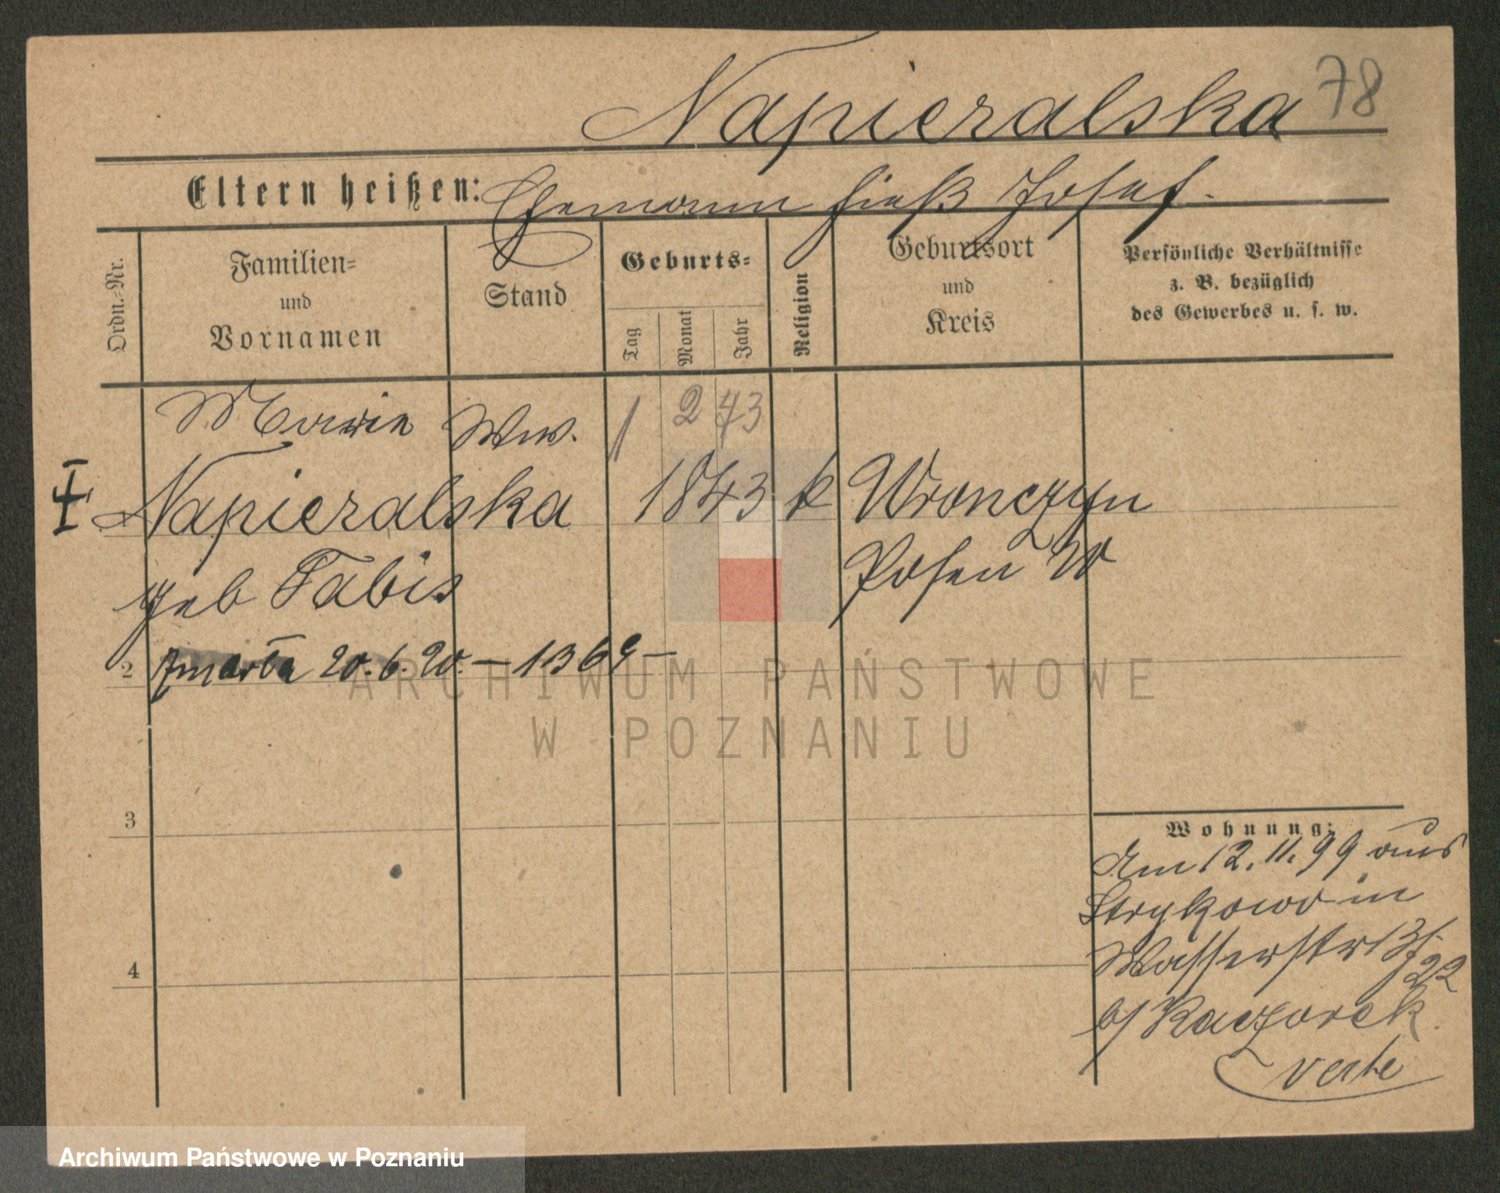 Napieralska 78
Eltern heißen: Ehemann hieß Josef.
Ordn.-Nr.
Familien-
und
Vornamen
Stand
Geburts-
Tag
Monat
Jahr
Religion
Geburtsort
und
Kreis
Persönliche Verhältnisse
z. B. bezüglich
des Gewerbes u. s. w.
Marie Ww. 1 2 43
Napieralska 1843 k Wronczyn
geb Tabis Posen W
2 zmarła 20.6.20. – 1369 –
ARCHIWUM PAŃSTWOWE
W POZNANIU
3
Wohnung:
Am 12.11.99 aus
Strykowo in
Wasserstr 13/
22
b/ Kaczorek.
4
verte
Archiwum Państwowe w Poznaniu